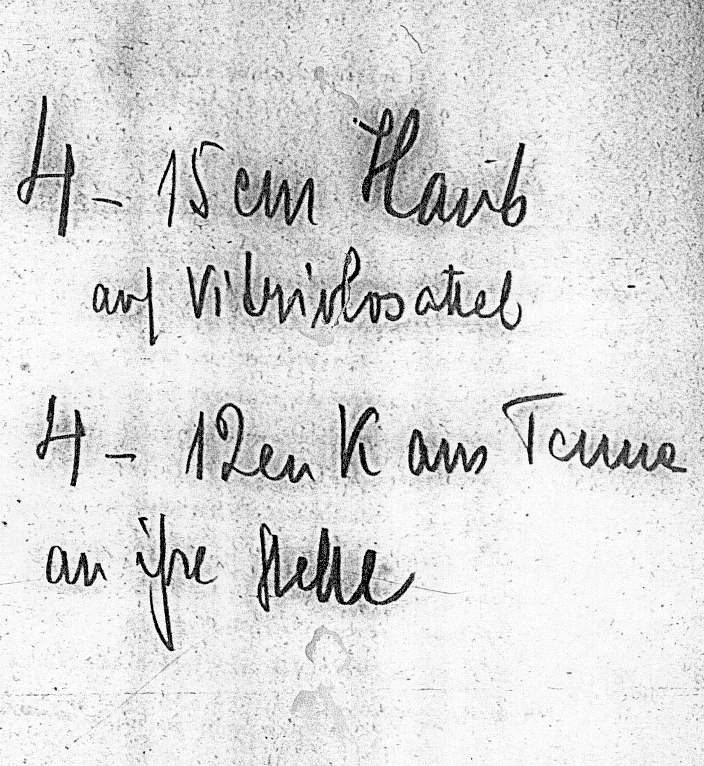 4 - 15 cm Haub
auf Vitriolosattel
4 - 12en K aus Tenne
an ihre Stelle